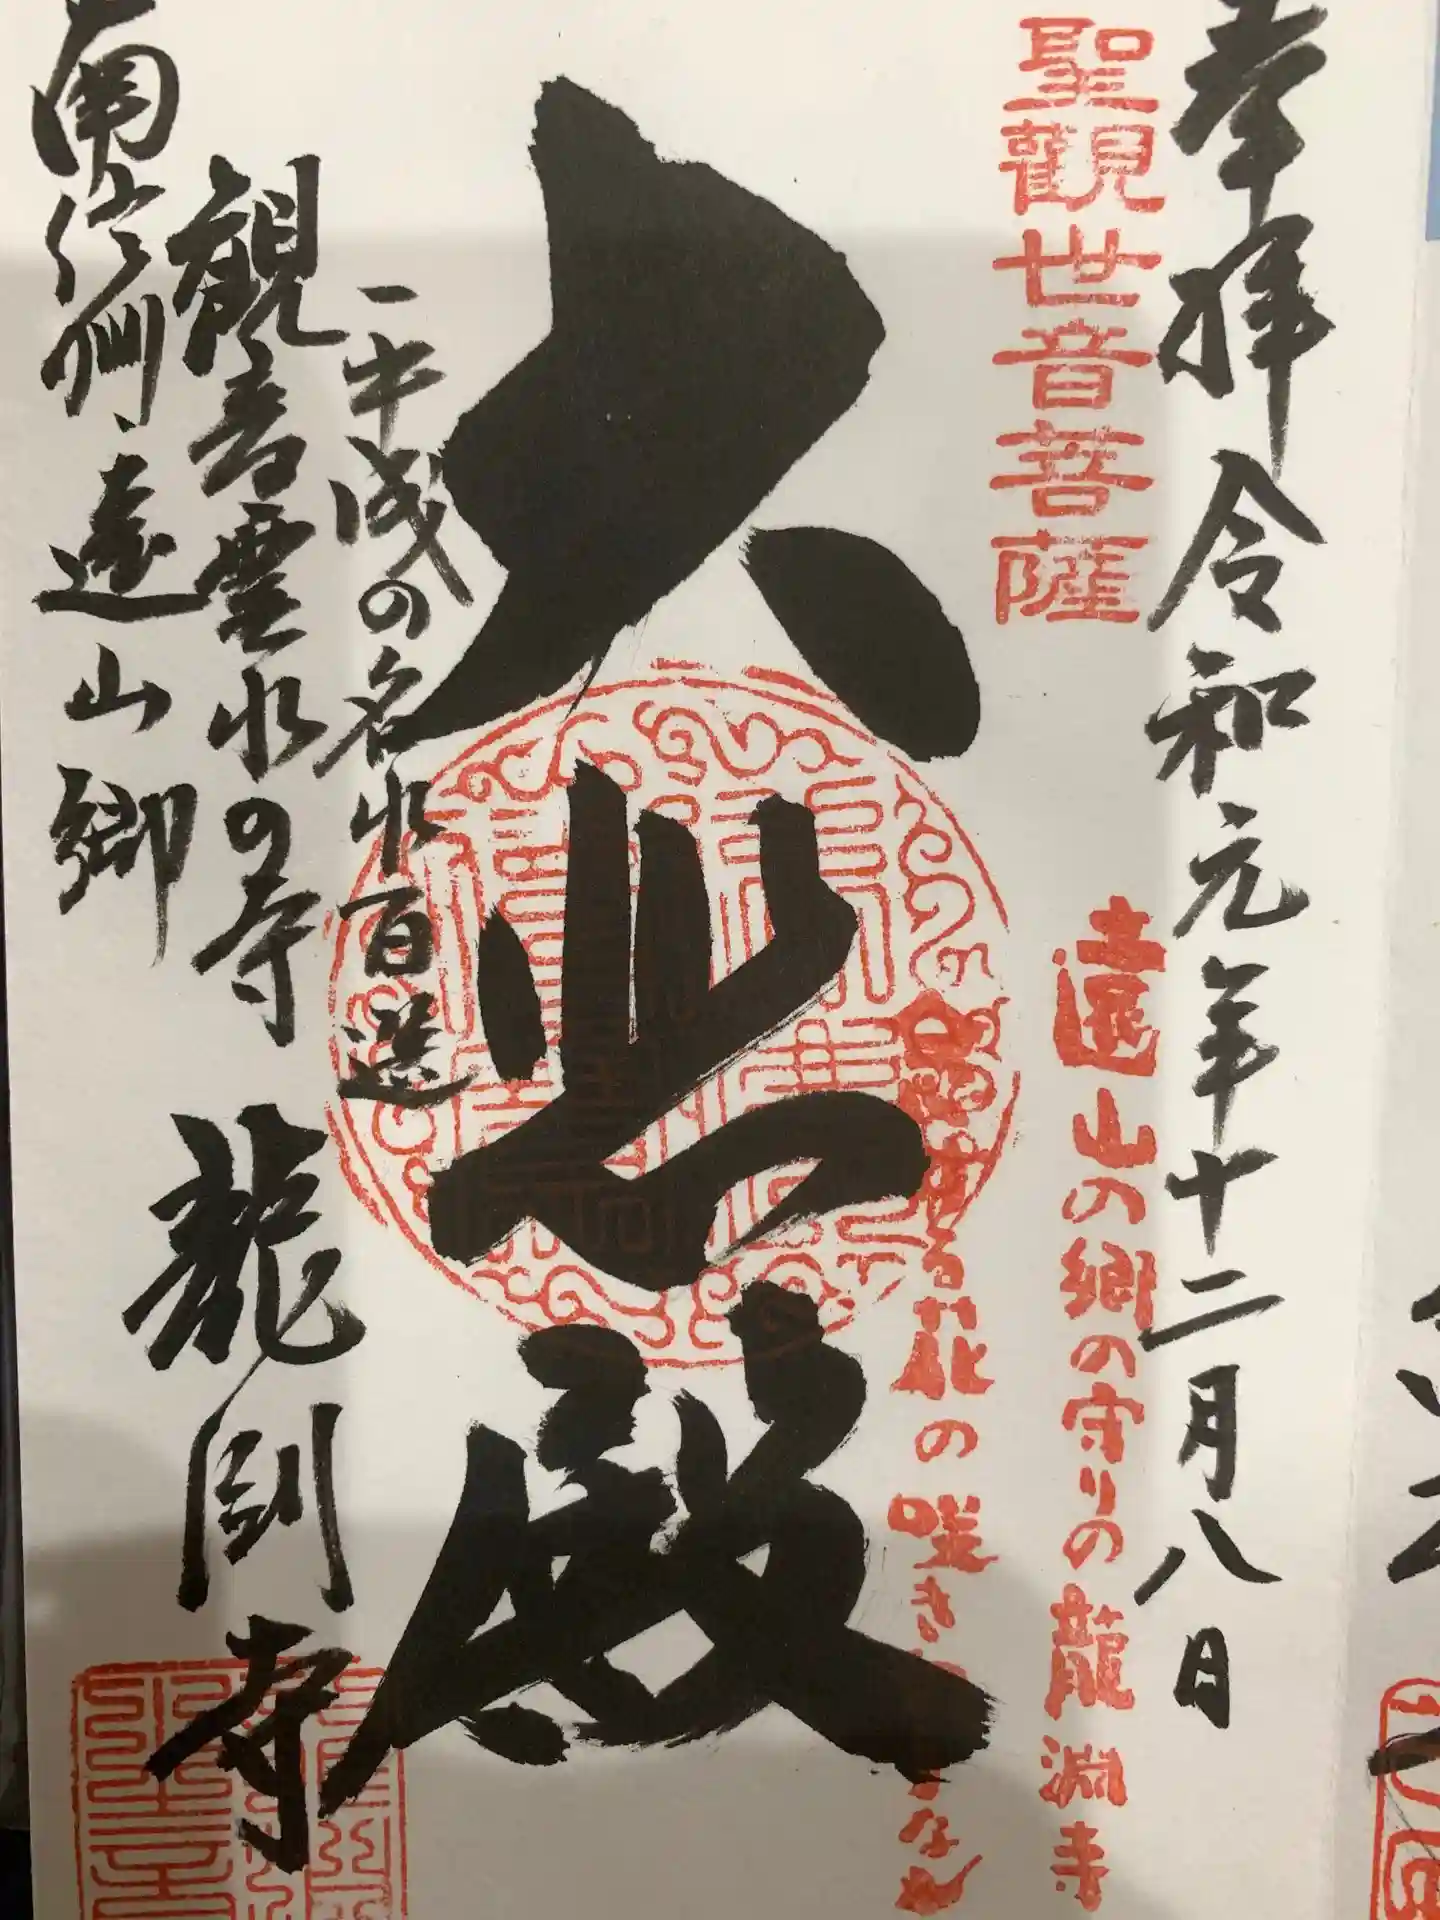 奉拝 令和元年十二月八日
聖觀世音菩薩
遠山の郷の守りの龍淵寺
る花の咲き
大悲殿
一平成の名水百選
観音霊水の寺 龍淵寺
南信州・遠山郷